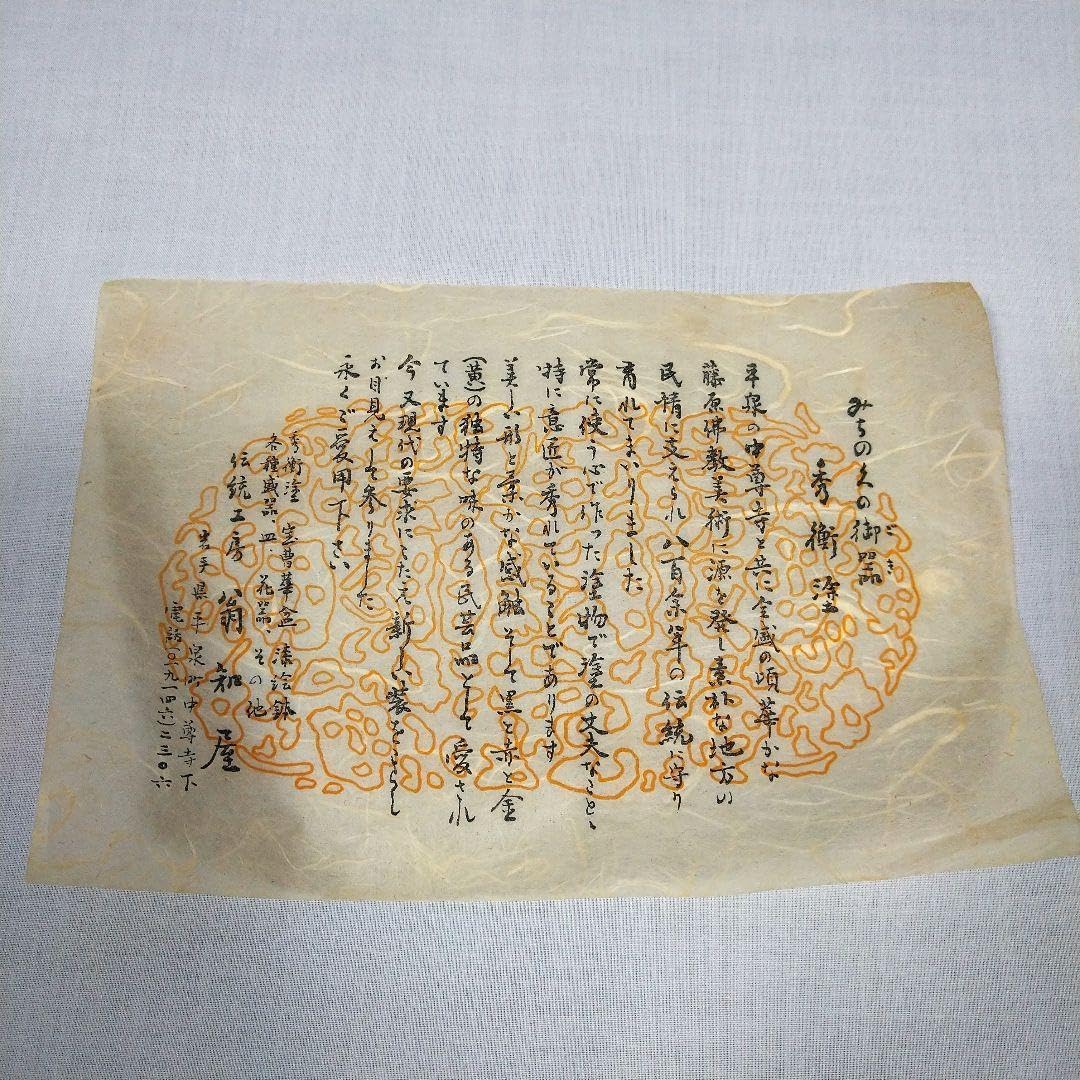 みちのくの御器
ごき
秀衡塗
平泉の中尊寺と共に全盛の頃華かな
藤原佛教美術に源を発し素朴な地方の
民情に支えられ八百余年の伝統に守り
育れてまいりました
常に使う心で作った塗物で塗の丈夫なこと、
特に意匠が秀れていることであります
美しい形と柔かな感触そして黒と赤と金
(黄)の独特な味のある民芸品として愛され
ています
今又現代の要求にこたえ新しい装をこらし
お目見えして参りました
永くご愛用下さい
秀衡塗 宝曹華盒 漆絵鉢
各種盛器、皿、花器、その他
伝統工房 翁知屋
岩手県平泉町中尊寺下
電話(〇九一四六)二三〇六